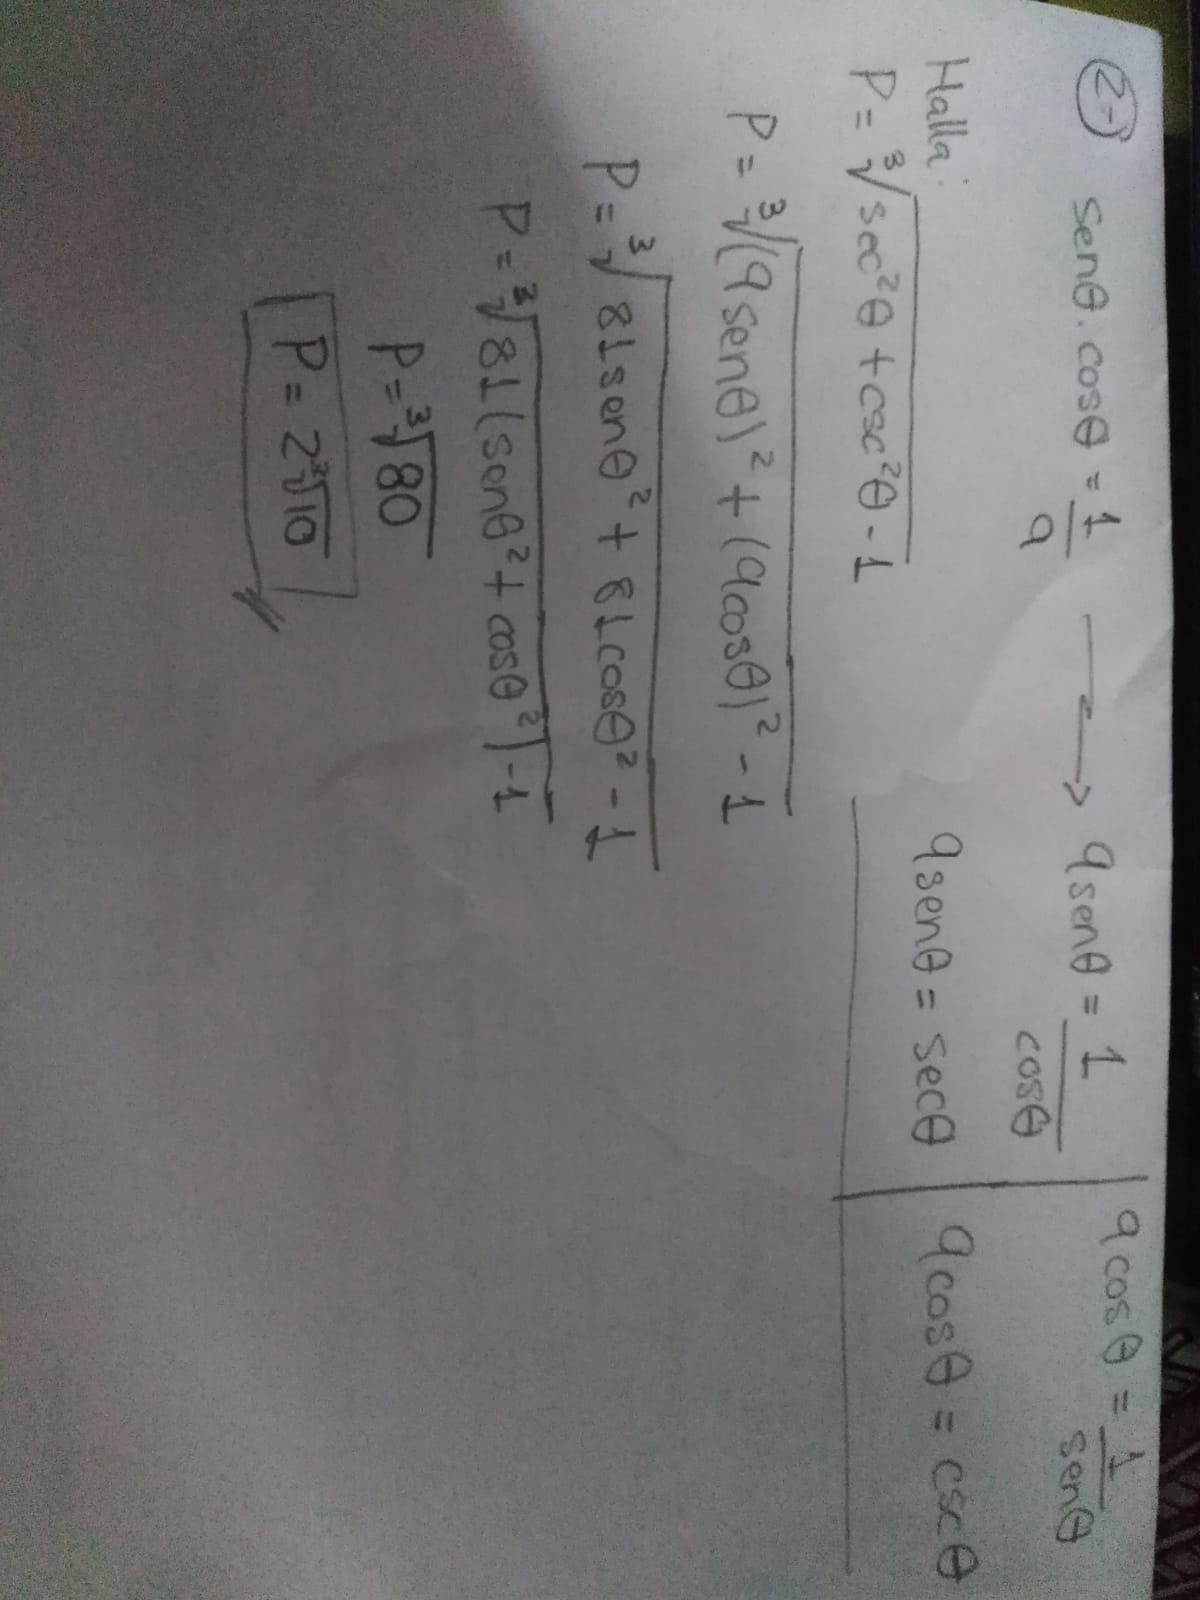 2-) senθ.cosθ = 1/9 → 9senθ = 1/cosθ | 9cosθ = 1/senθ
9senθ = secθ | 9cosθ = cscθ
Halla:
P = ³√sec²θ + csc²θ - 1
P = ³√(9senθ)² + (9cosθ)² - 1
P = ³√81senθ² + 81cosθ² - 1
P = ³√81(senθ² + cosθ²) - 1
P = ³√80
P = 2³√10